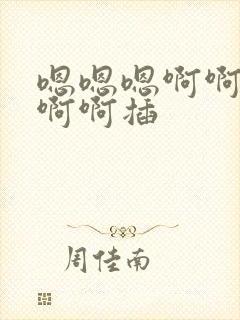 嗯嗯嗯啊啊
啊啊插
周佳南